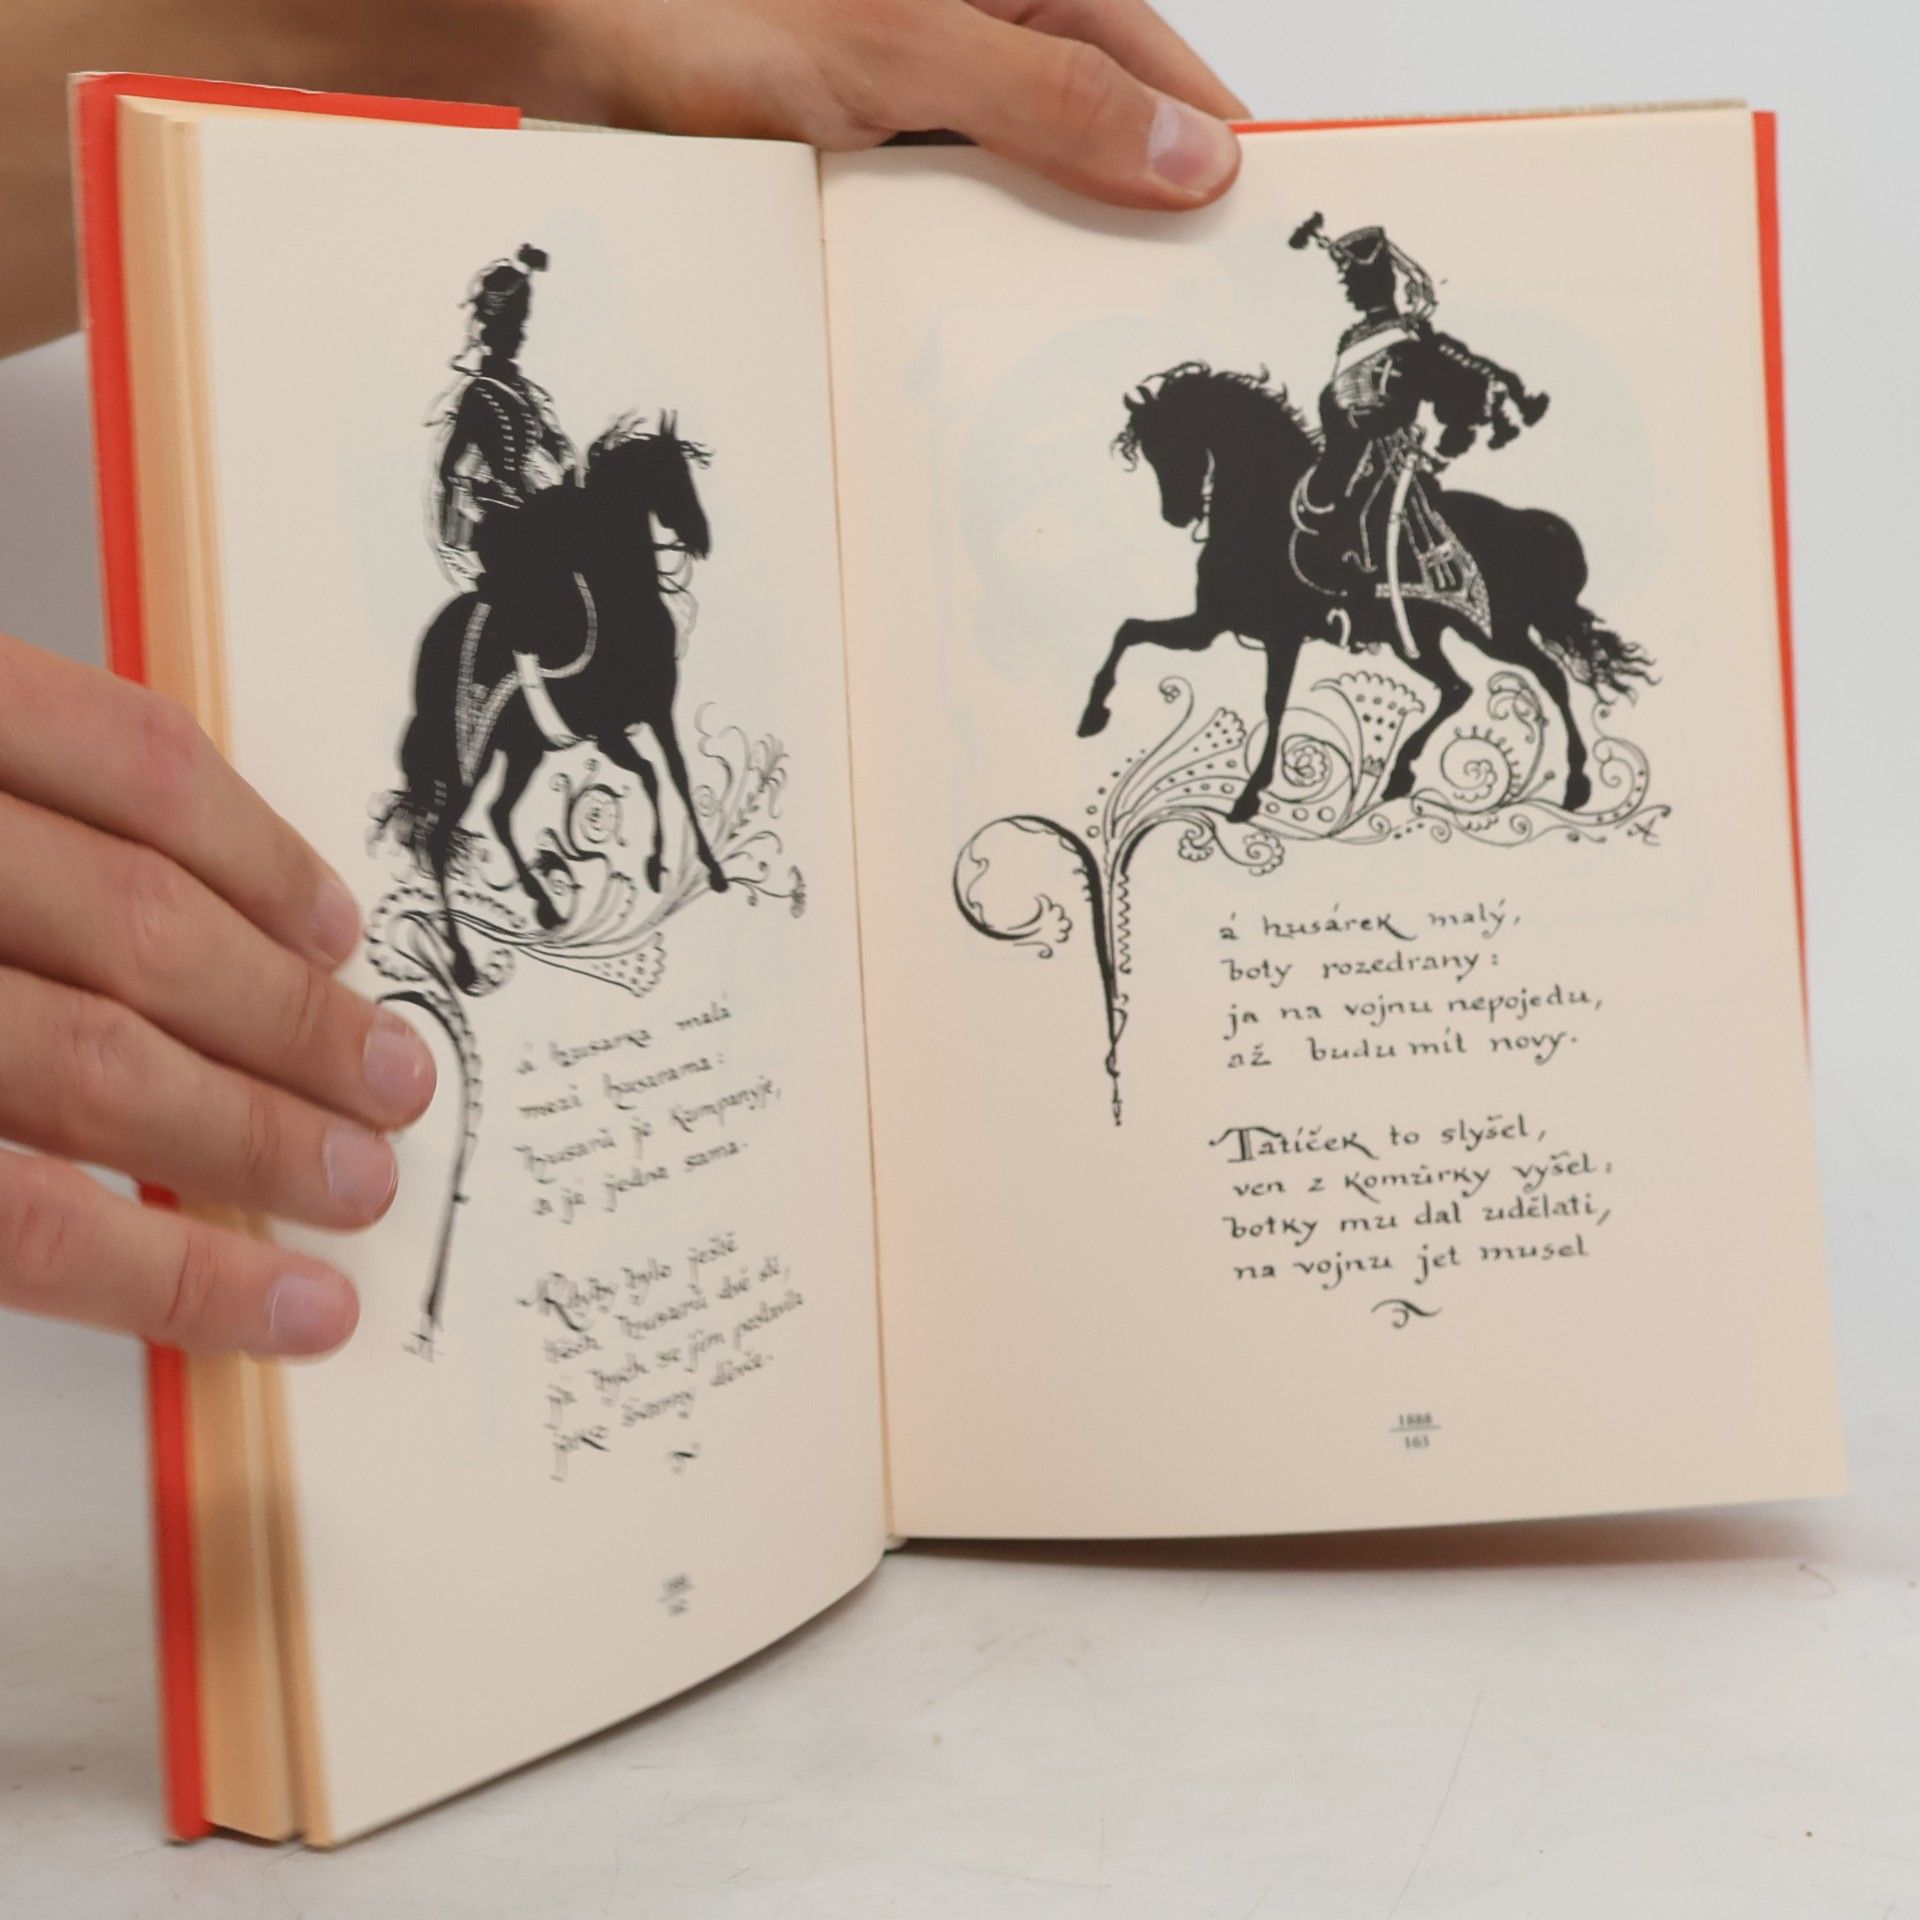 á husarka malá
mezi husarama:
husarů je kumpanyje,
a já jedna sama.
bylo ještě
husarů dvě stě,
á husárek malý,
boty rozedrany:
ja na vojnu nepojedu,
až budu mít novy.
Tatíček to slyšel,
ven z komůrky vyšel:
botky mu dal udělati,
na vojnu jet musel
1888
163